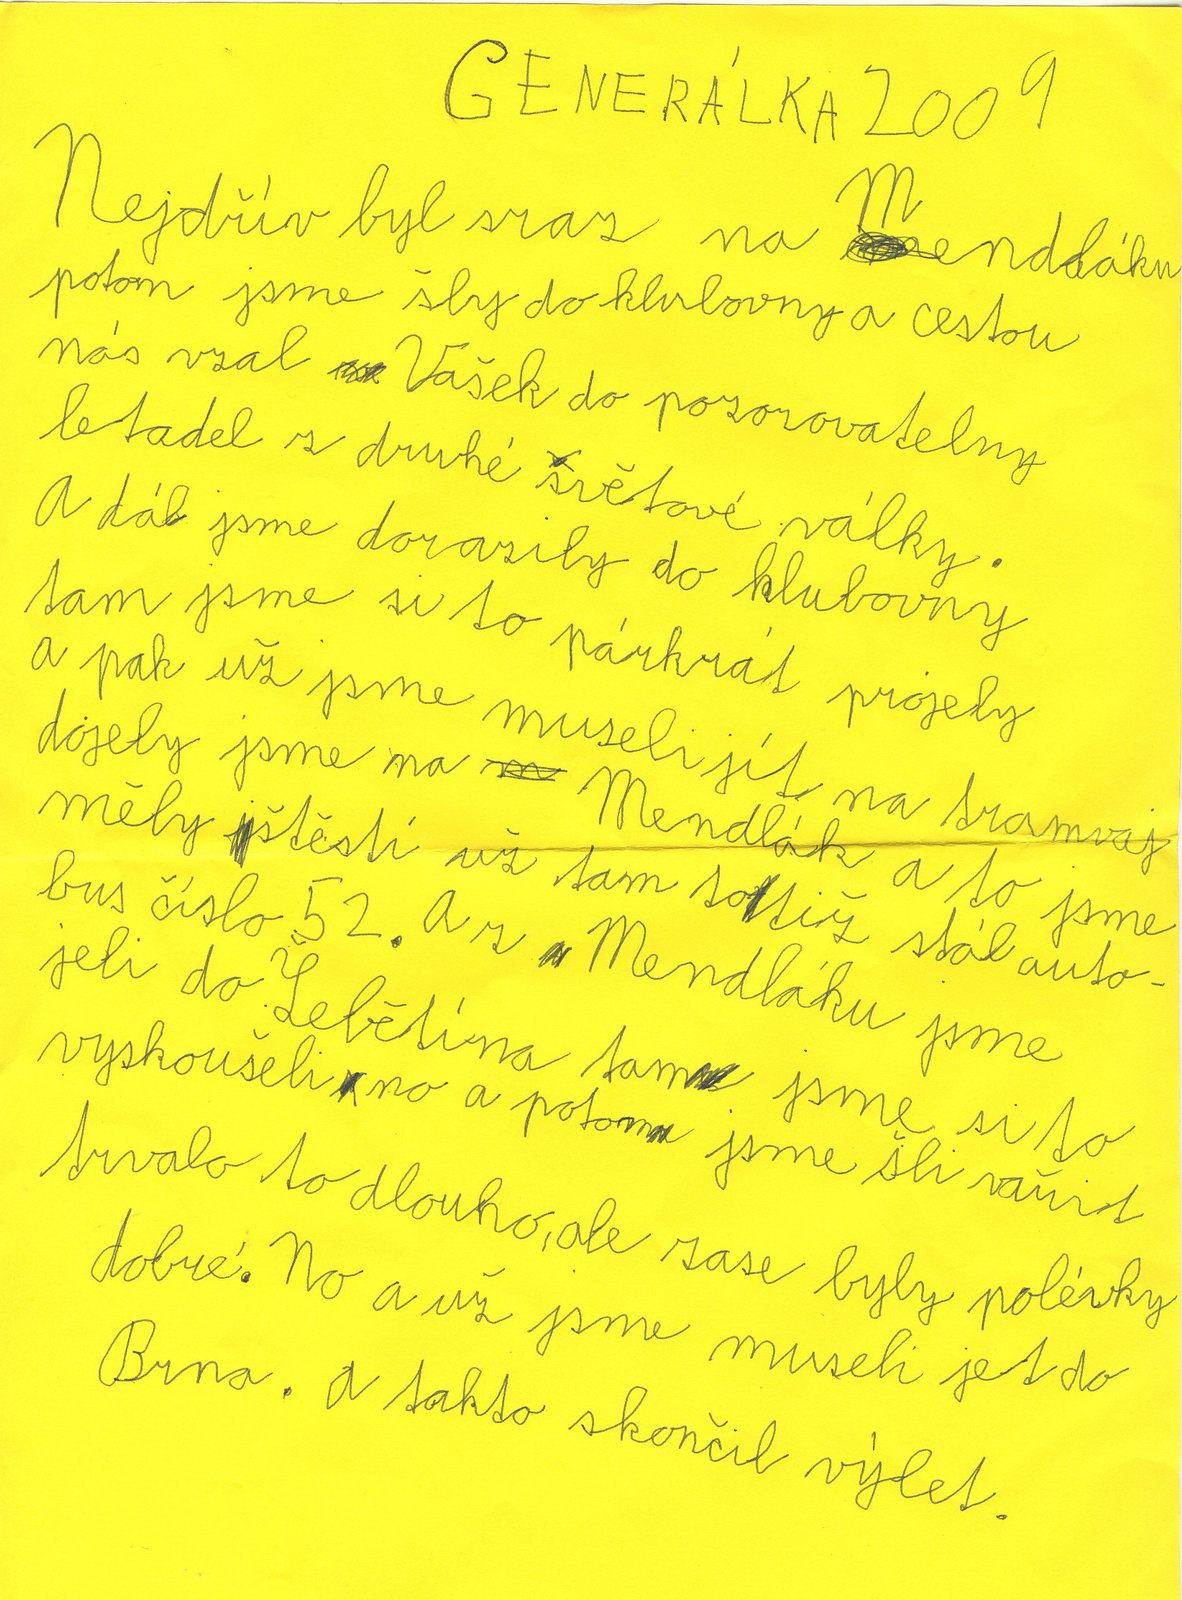 GENERÁLKA 2009
Nejdřív byl sraz na Mendláku
potom jsme šly do klubovny a cestou
nás vzal Vašek do pozorovatelny
letadel z druhé světové války.
A dál jsme dorazily do klubovny
tam jsme si to párkrát projely
a pak už jsme museli jít na tramvaj
dojely jsme na Mendlák a to jsme
měly štěstí už tam totiž stál auto-
bus číslo 52. A z Mendláku jsme
jeli do Žebětína tam jsme si to
vyskoušeli no a potom jsme šli vařit
trvalo to dlouho, ale zase byly polévky
dobré. No a už jsme museli jet do
Brna. A takto skončil výlet.